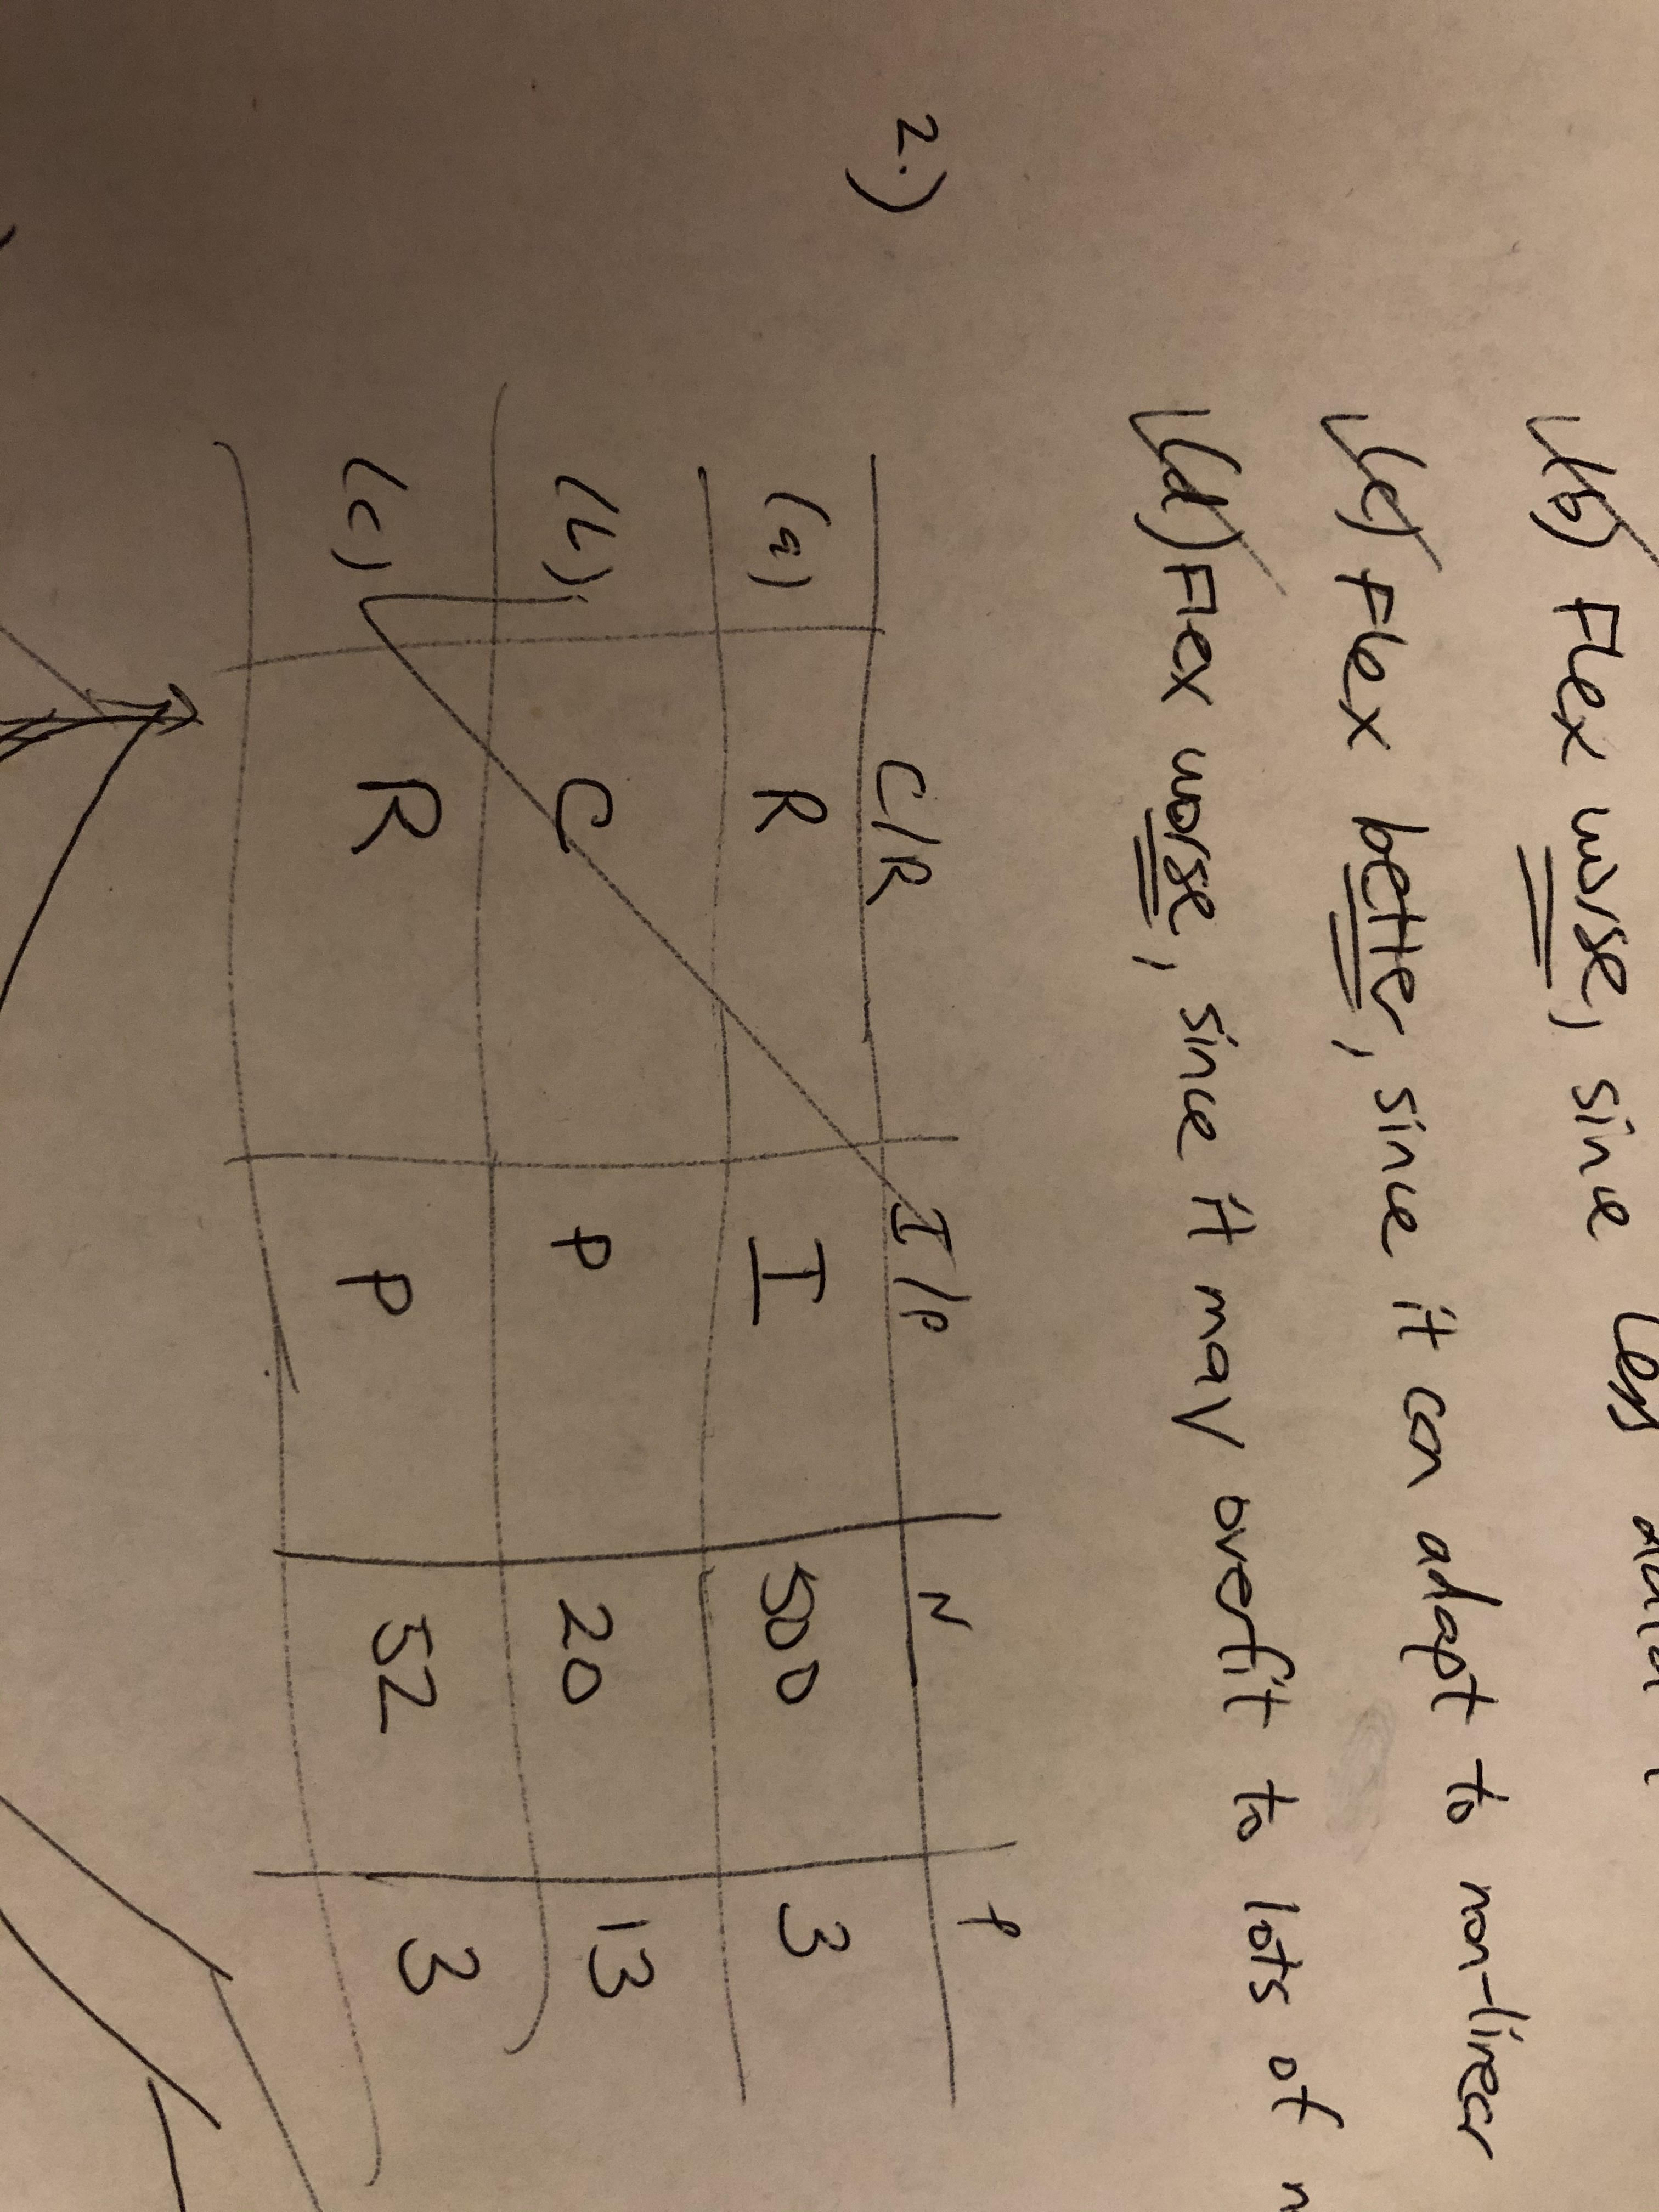 (b) Flex worse, since less data
(c) Flex better, since it can adapt to non-linear
(d) Flex worse, since it may overfit to lots of
2.)
C/R I/P N P
(a) R I 500 3
(b) C P 20 13
(c) R P 52 3